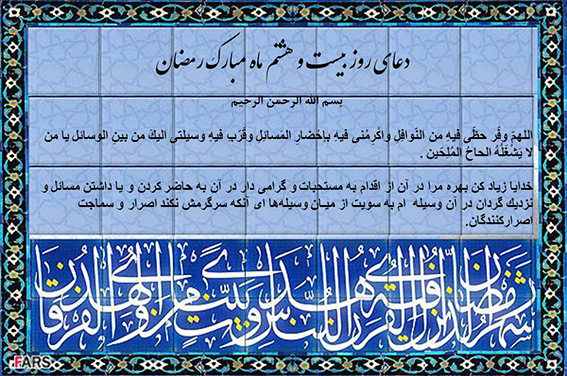 دعای روز بیست و هشتم ماه مبارک رمضان
بسم الله الرحمن الرحیم
اللهمّ وفّر حظّی فیهِ من النّوافِلِ واکْرِمْنی فیهِ بإحْضارِ المَسائِلِ وقَرّب فیهِ وسیلتی الیكَ من بینِ الوسائل یا من
لا یَشْغَلُهُ الحاحُ المُلِحّین .
خدایا زیاد کن بهره مرا در آن از اقدام به مستحبات و گرامی دار در آن به حاضر کردن و یا داشتن مسائل و
نزدیك گردان در آن وسیله ام به سویت از میـان وسیله‌ها ای آنکه سرگرمش نکند اصرار و سماجت
اصرارکنندگان.
شهر رمضان الذی انزل فیه القرآن هدی للناس و بینات من الهدی و الفرقان
FARS